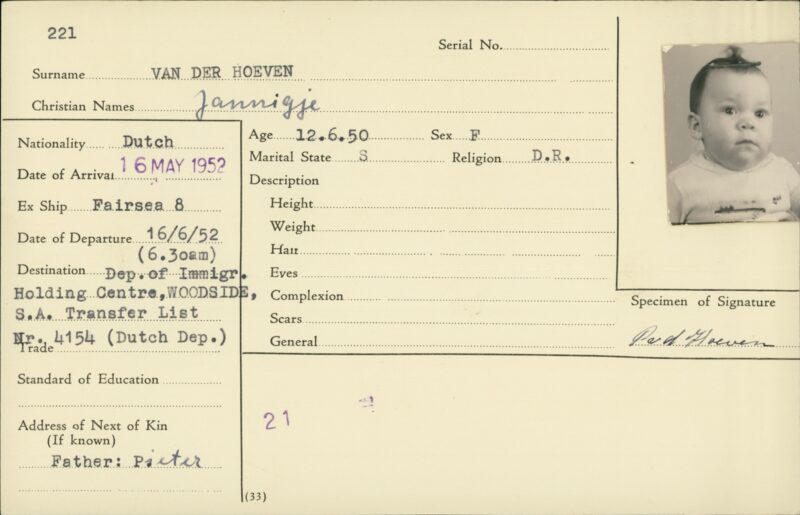 221
Serial No.
Surname VAN DER HOEVEN
Christian Names Jannigje
Nationality Dutch
Date of Arrival 16 MAY 1952
Ex Ship Fairsea 8
Date of Departure 16/6/52
(6.30am)
Destination Dep.of Immigr.
Holding Centre,WOODSIDE,
S.A. Transfer List
Nr. 4154 (Dutch Dep.)
Trade
Standard of Education
Address of Next of Kin
(If known)
Father: Pieter
Age 12.6.50 Sex F
Marital State S Religion D.R.
Description
Height
Weight
Hair
Eyes
Complexion
Scars
General
21
(33)
Specimen of Signature
Pvd Hoeven